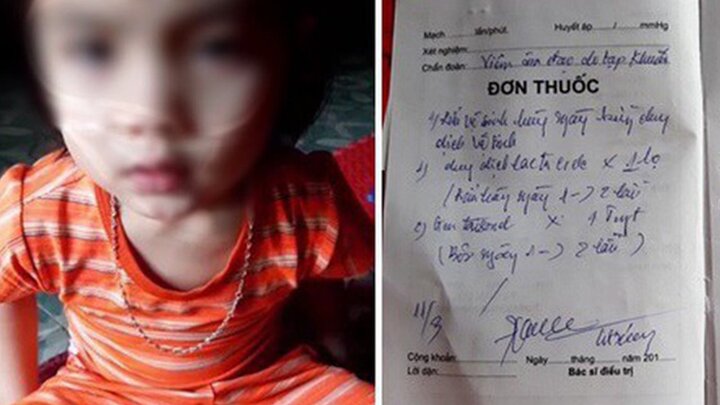 Mạch............lần/phút. Huyết áp....../......mmHg
Xét nghiệm:
Chẩn đoán: Viêm âm đạo do tạp khuẩn
ĐƠN THUỐC
vệ sinh hàng ngày bằng dung
dịch vệ sinh
1) dung dịch lactacide x 1 lọ
ngày 1 -> 2 lần
2) x 1 Tuýt
(Bôi ngày 1 -> 2 lần)
11/3
Cộng khoản: Ngày tháng năm 201
Lời dặn: Bác sĩ điều trị